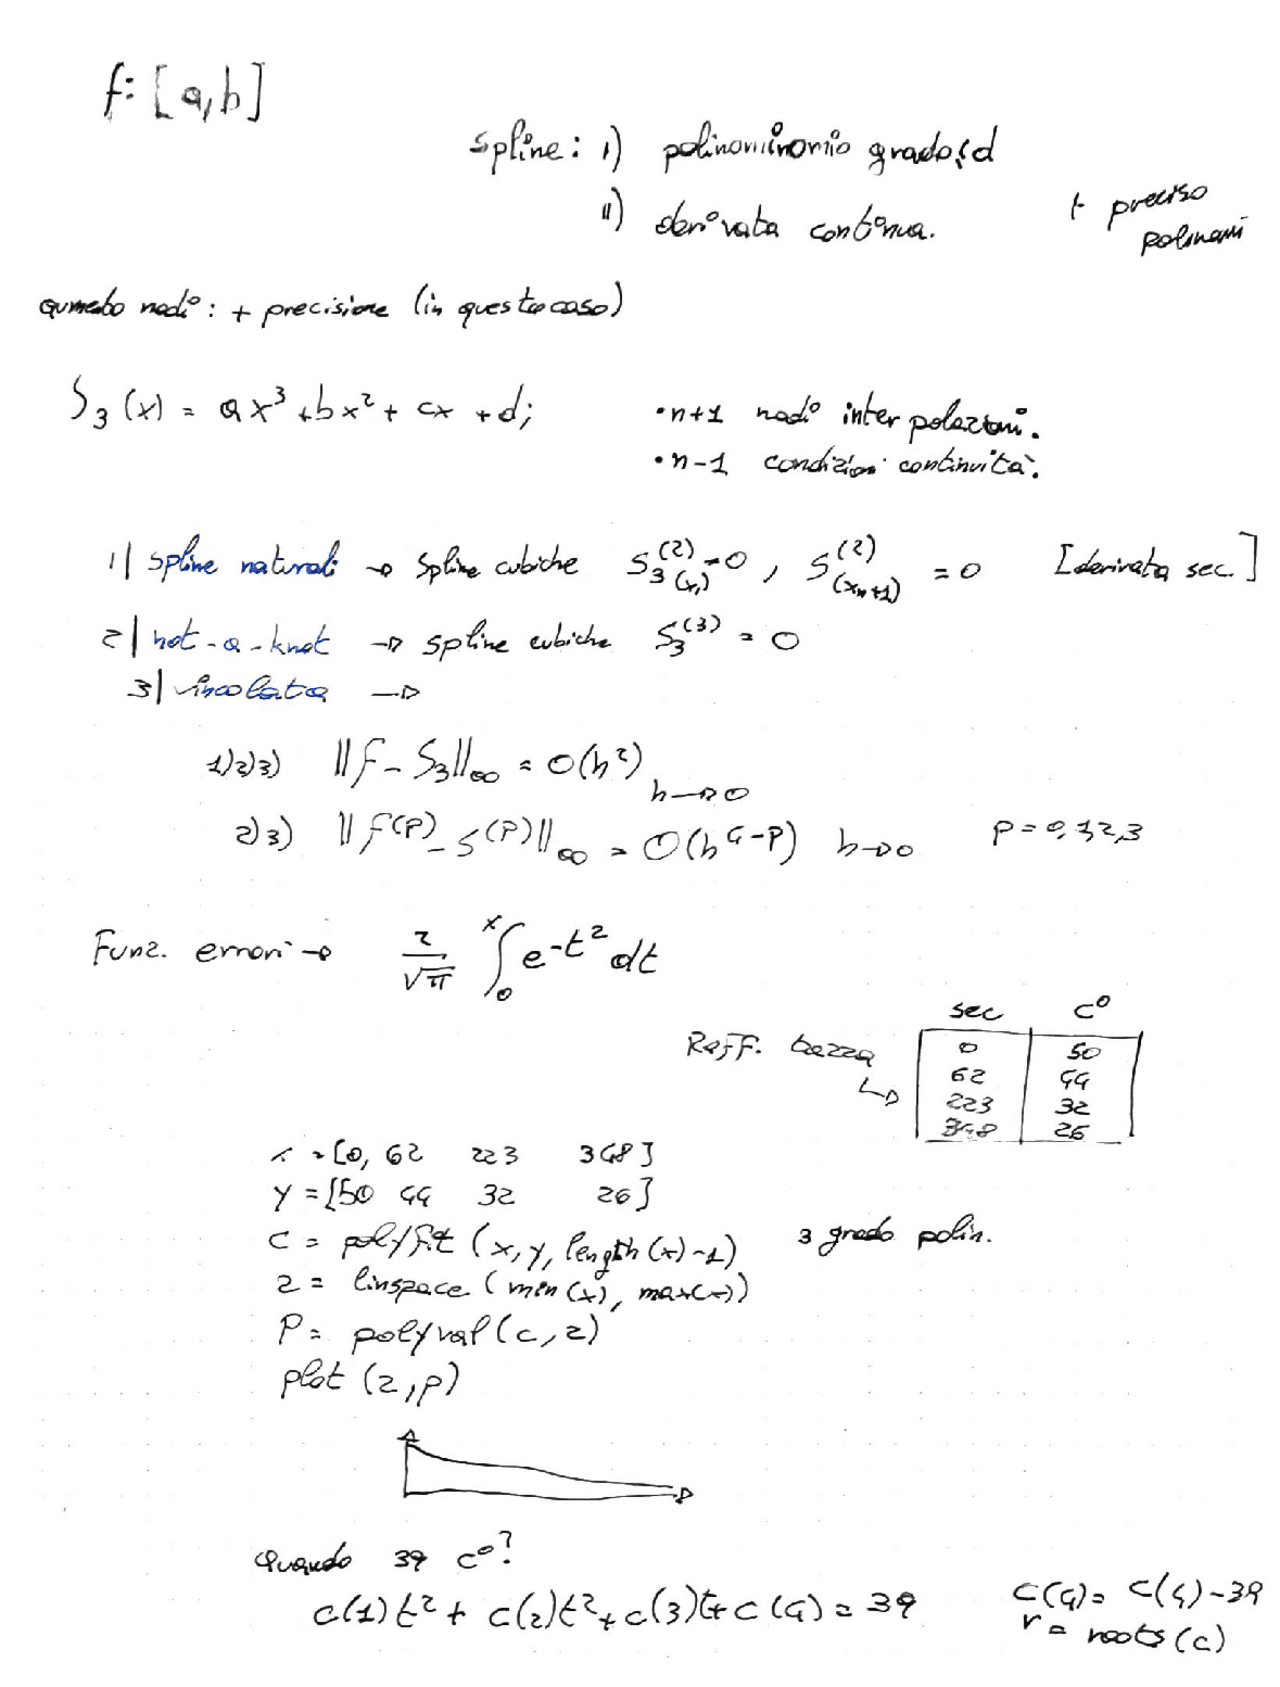 f: [a,b]
spline: i) polinominomio grado ≤ d
ii) derivata continua.
+ preciso
polinomi
aumeto nodi: + precisione (in questo caso)
S₃(x) = ax³ + bx² + cx + d;
• n+1 nodi interpolazioni.
• n-1 condizioni continuità.
1| spline naturali → spline cubiche S₃⁽²⁾(x₁) = 0, S⁽²⁾(xₙ₊₁) = 0 [derivata sec.]
2| not-a-knot → spline cubiche S₃⁽³⁾ = 0
3| vincolata →
1)2)3) ||f - S₃||∞ = O(h²) h→0
2)3) ||f⁽ᵖ⁾ - s⁽ᵖ⁾||∞ = O(h⁴⁻ᵖ) h→0 p = 0,1,2,3
Funz. errori → 2/√π ∫₀ˣ e^-t² dt
sec c°
Raff. tazza
↳
0 50
62 44
223 32
348 26
x = [0, 62 223 348]
y = [50 44 32 26]
c = polyfit (x, y, length(x)-1) 3 grado polin.
z = linspace (min(x), max(x))
P = polyval(c, z)
plot (z, p)
Quando 39 c°?
c(1)t² + c(2)t² + c(3)t + c(4) = 39
c(4) = c(4) - 39
r = roots(c)